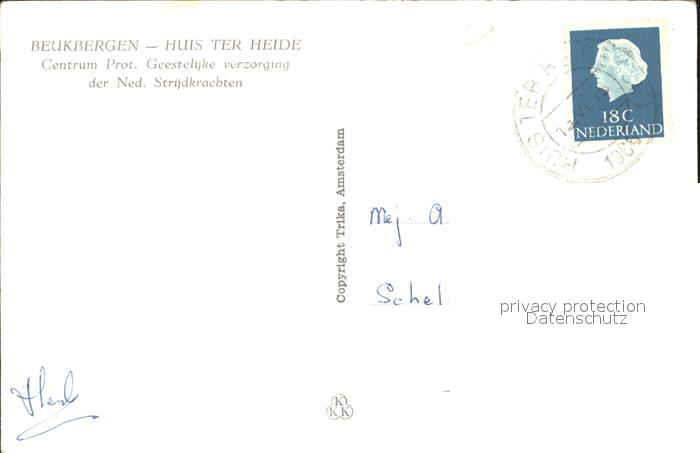 BEUKBERGEN — HUIS TER HEIDE
Centrum Prot. Geestelijke verzorging
der Ned. Strijdkrachten
18C
NEDERLAND
HUIS TER H
Copyright Trika, Amsterdam
Mej. A
Schel
privacy protection
Datenschutz
K
K K